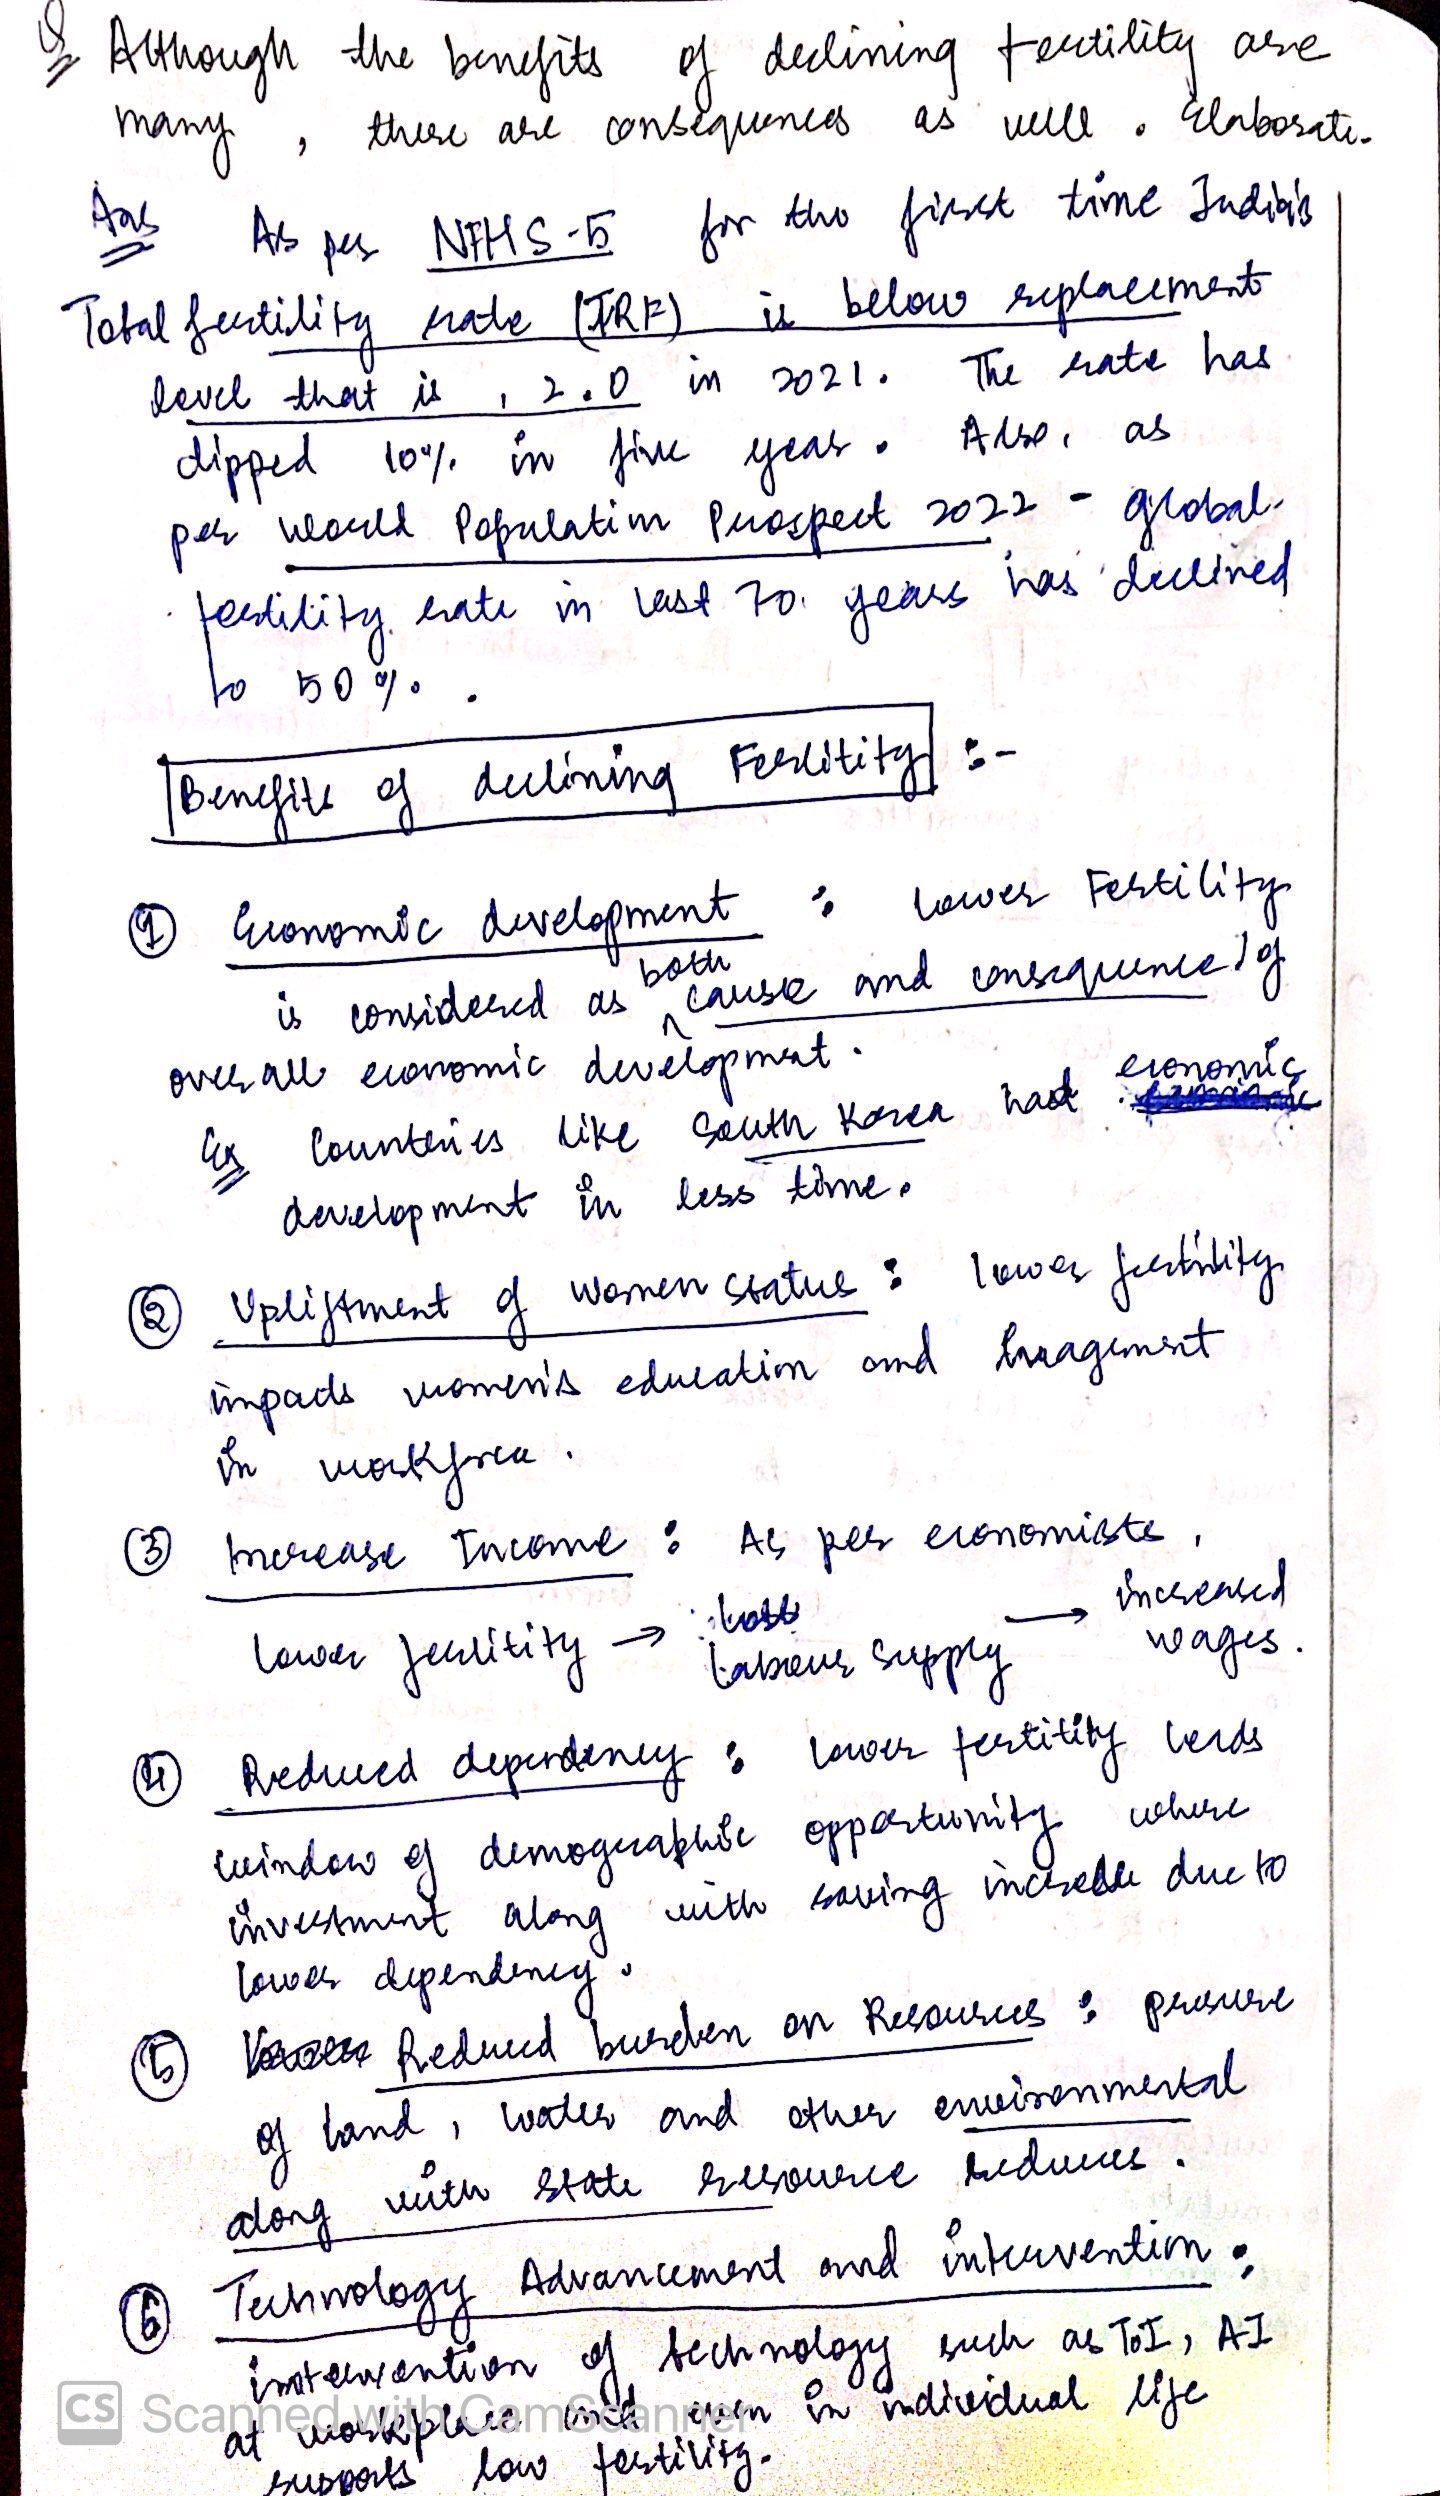 Q Although the benefits of declining fertility are
many, there are consequences as well. Elaborate.
Ans As per NFHS-5 for the first time India's
Total fertility rate (TRF) is below replacement
level that is, 2.0 in 2021. The rate has
dipped 10% in five year. Also, as
per World Population Prospect 2022 - global
fertility rate in last 70 years has declined
to 50%.
Benefits of declining Ferlitity :-
① Economic development : lower Fertility
is considered as both cause and consequence of
overall economic development.
Ex Countries like South Korea had economic
development in less time.
② Upliftment of women status : lower fertility
impacts women's education and
in workforce.
③ Increase Income : As per economists,
lower ferlitity → less labour supply → increased wages.
④ Reduced dependency : lower fertitity leads
window of demographic opportunity where
investment along with saving increase due to
lower dependency.
⑤ Reduced burden on Resources : presure
of land, water and other environmental
along with state resource reduces.
⑥ Technology Advancement and intervention :
intervention of technology such as IoT, AI
at workplace and even in individual life
supports low fertility.
CS Scanned with CamScanner